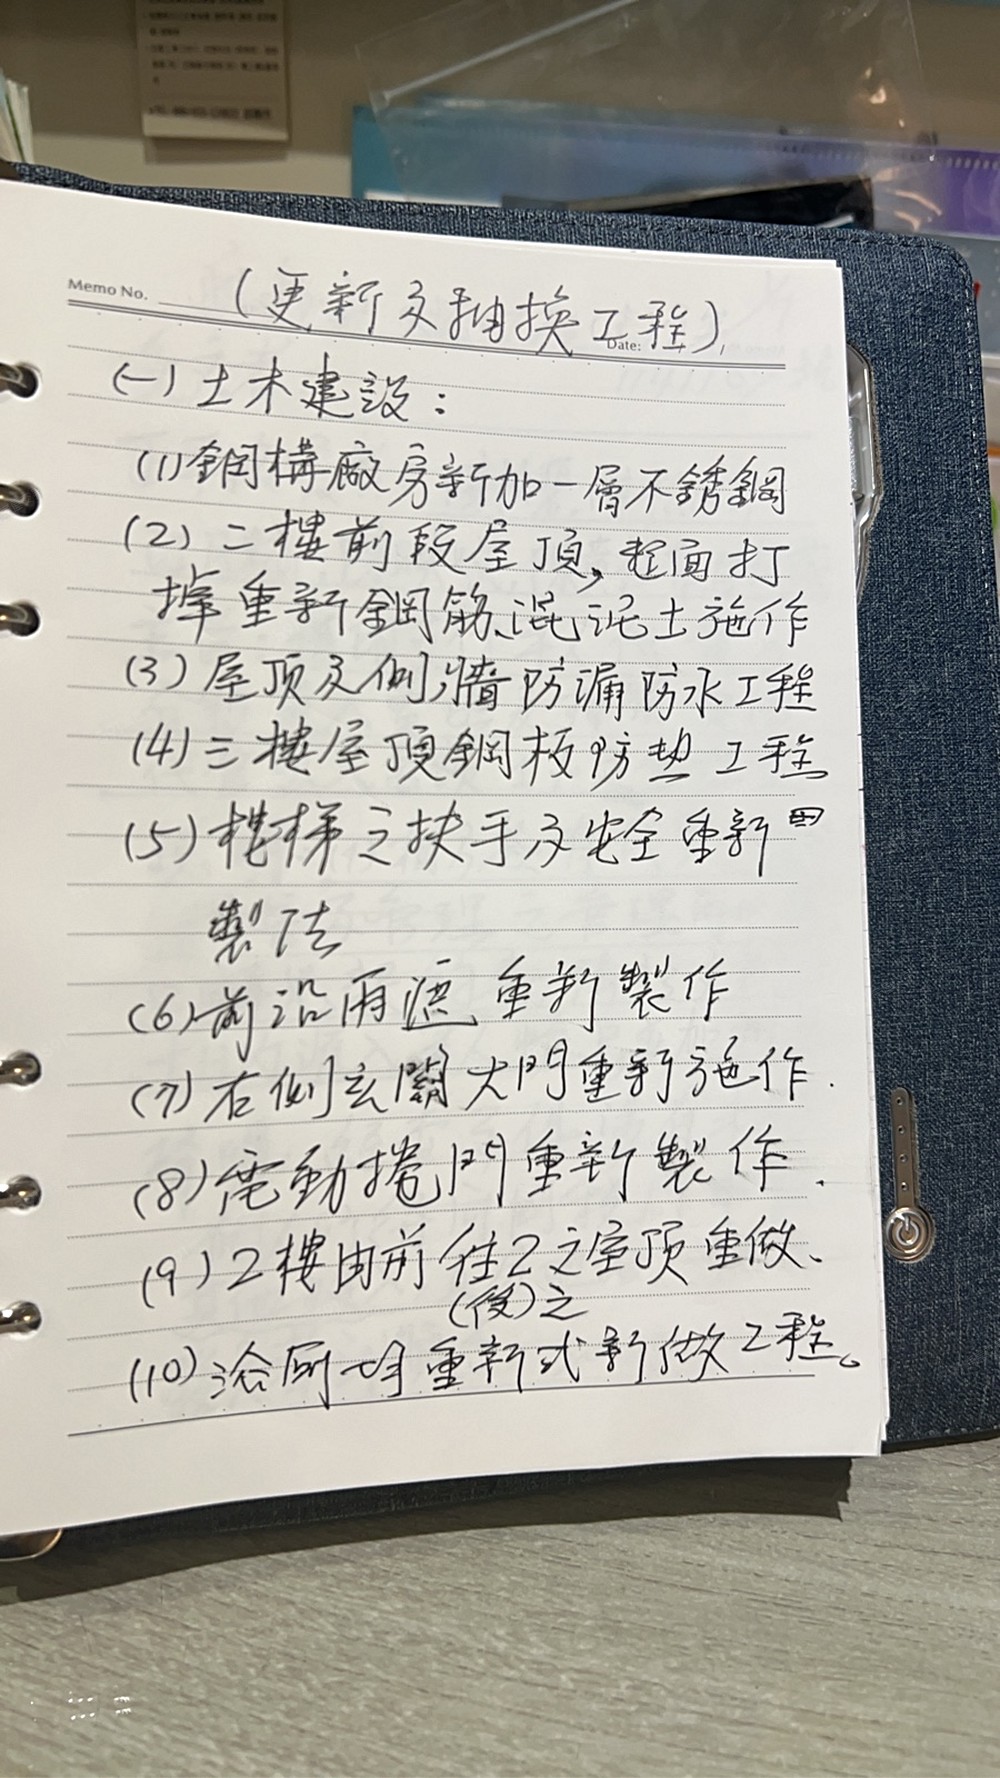 Memo No.
(更新及抽換工程)
Date:
(一)土木建設:
(1)鋼構廠房新加一層不銹鋼
(2)二樓前段屋頂,起面打
掉重新鋼筋、混泥土施作
(3)屋頂及側牆防漏防水工程
(4)三樓屋頂鋼板防熱工程
(5)樓梯之扶手及安全重新
製法
(6)前沿雨遮重新製作
(7)右側玄關大門重新施作.
(8)電動捲門重新製作.
(9)2樓由前往2之室頂重做、
(後)之
(10)浴厠 重新式新做工程。